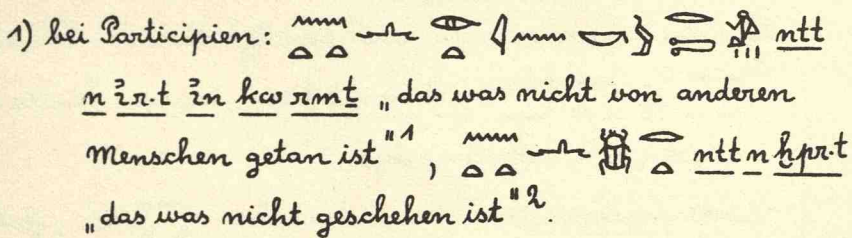 1) bei Participien: 𓈖𓏏𓏏 𓂜 𓁹𓏏 𓇋𓈖 𓎡𓅱 𓂋𓍿𓀀𓁐𓏥 ntt
n ỉr·t ỉn kw rmṯ „das was nicht von anderen
Menschen getan ist"¹, 𓈖𓏏𓏏 𓂜 𓆣𓂋𓏏 ntt n ḫpr·t
„das was nicht geschehen ist"².